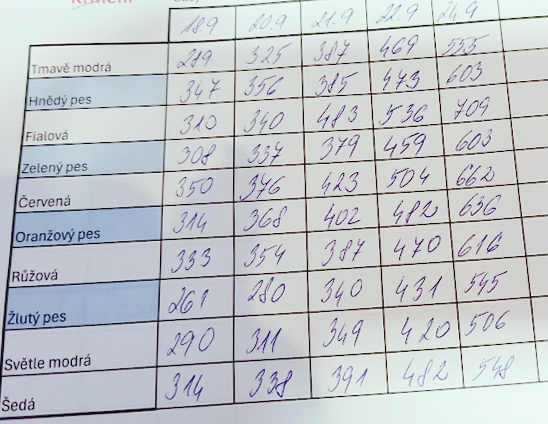 Krmení
18.9 20.9 21.9 22.9 24.9
Tmavě modrá 289 325 387 469 555
Hnědý pes 347 356 385 473 603
Fialová 310 340 483 536 709
Zelený pes 308 337 379 459 603
Červená 350 376 423 504 662
Oranžový pes 314 368 402 482 636
Růžová 333 354 387 470 616
Žlutý pes 261 280 340 431 545
Světle modrá 290 311 349 420 506
Šedá 314 338 391 482 548